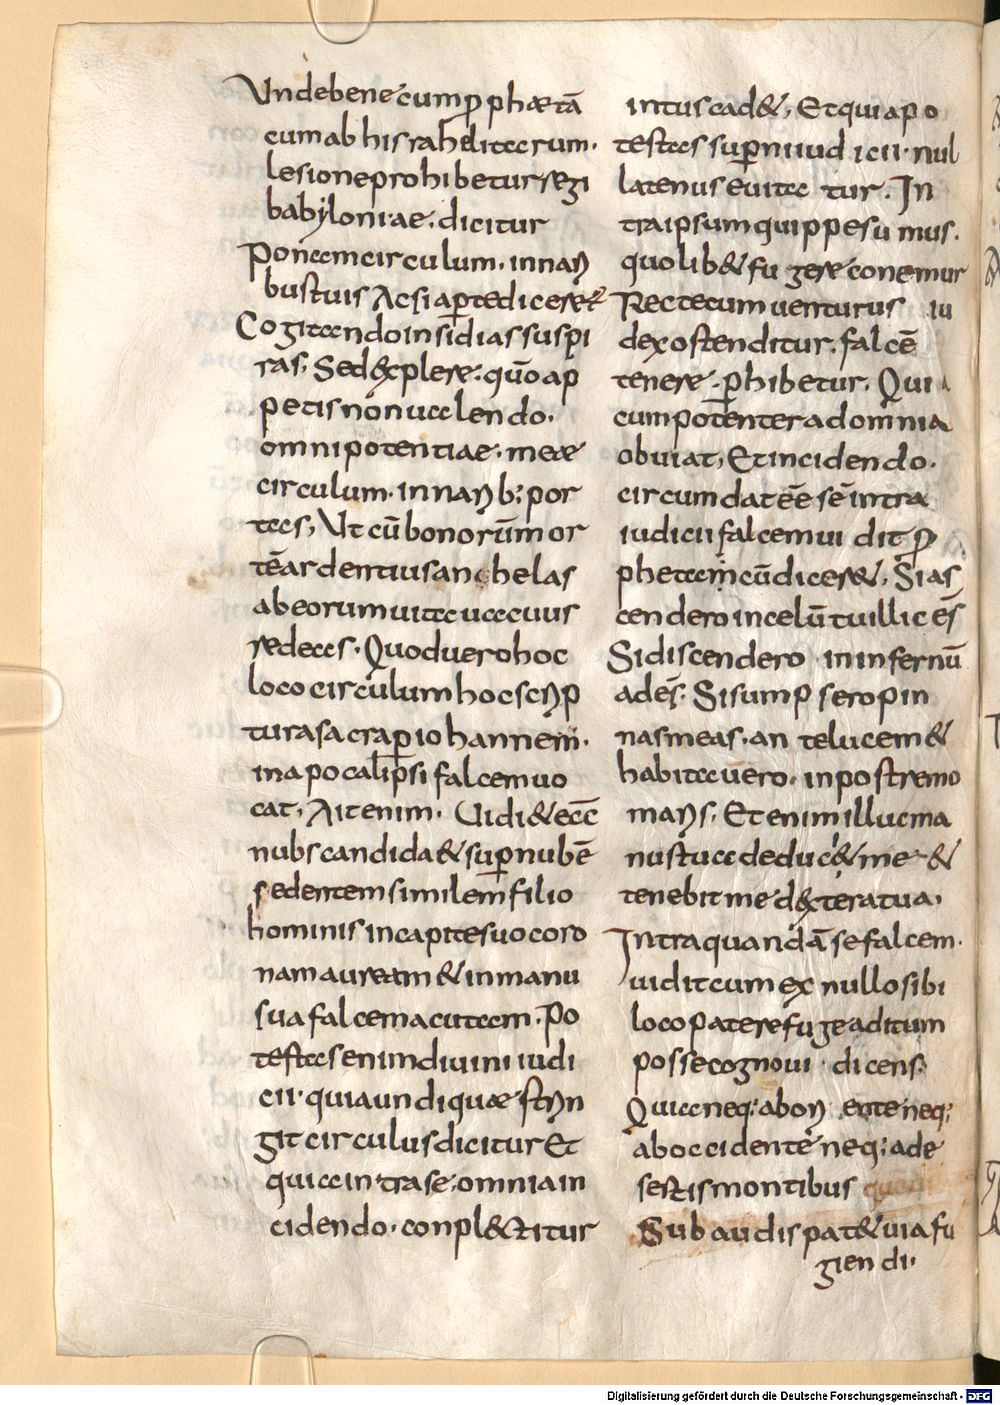 Undebene cum ꝓphætā
cum ab his rahelitarum·
lesione prohibetur regi
babyloniae· dicitur
Ponam circulum· in narı
bus tuis Ac si aperte diceret
Cogitando insidias suspi
ras; Sed explere· quō ap
petis non ualendo·
omnipotentiae· meæ
circulum· in narıb; por
tas; Ut cū bonorūm or
tē ardentius anchelas
ab eorum uita uacuus
redeas· Quod uero hoc
loco circulum hoc scrıp
tura sacra ꝑ iohannem·
in apocalipsi falcem uo
cat; Ait enim· Uidi & ecce
nubs candida & sup nubē
sedentem similem filio
hominis in capite suo coro
nam auream & in manu
sua falcem acutam· Po
testas enim diuini iudi
cii· quia undiquæ strın
git circulus dicitur Et
quia intra se· omnia in
cidendo· conplectitur
intus cad&; Et qui a po
testas superni iudicii· nul
latenus euita tur· In
tra ipsum quippe su mus·
quolib& fu gere conemur
Recte cum uenturus iu
dex ostenditur· falcē
tenere· ꝑhibetur· Qui a
cum potenter ad omnia
obuiat; Et incidendo·
circumdat ēē sē intra
iudicii falcem ui dit ꝓ
pheta cū dicer&; Si as
cendero in celū tu illic ēs
Si discendero in infernū
adēs· Si sumpsero pin
nas meas· an te lucem &
habitauero· in postremo
marıs; Et enim illuc ma
nus tua deduc& me· &
tenebit me dextera tua;
Intra quandā se falcem·
uidit cum ex nullo sibi
loco patere fugeaditum
posse cognoui· dicens·
Quia neq; ab orı ente neq;
ab occidente neq; a de
sertis montibus
Subaudis pat& uia fu
giendi·
Digitalisierung gefördert durch die Deutsche Forschungsgemeinschaft - DFG